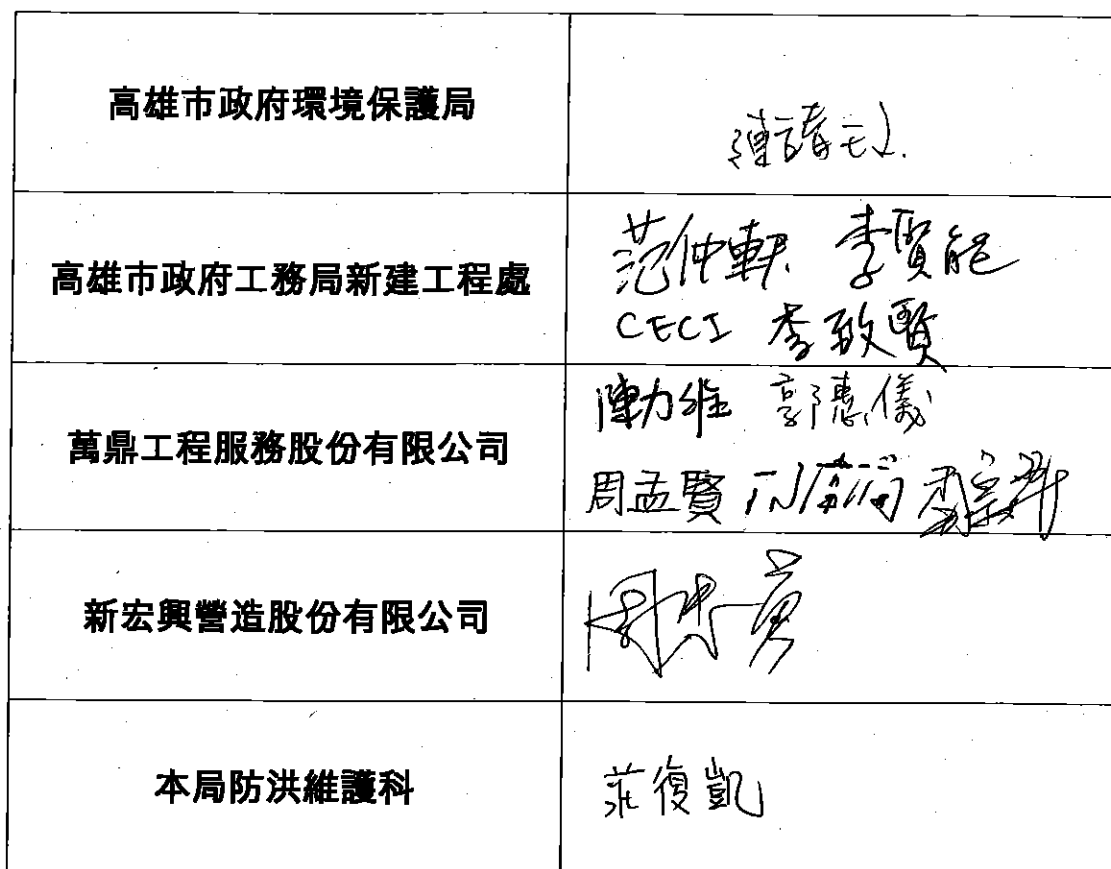 高雄市政府環境保護局
高雄市政府工務局新建工程處
范仲軒 李賢能
CECI 李致賢
萬鼎工程服務股份有限公司
陳力維 郭惠儀
周孟賢
新宏興營造股份有限公司
本局防洪維護科
莊復凱